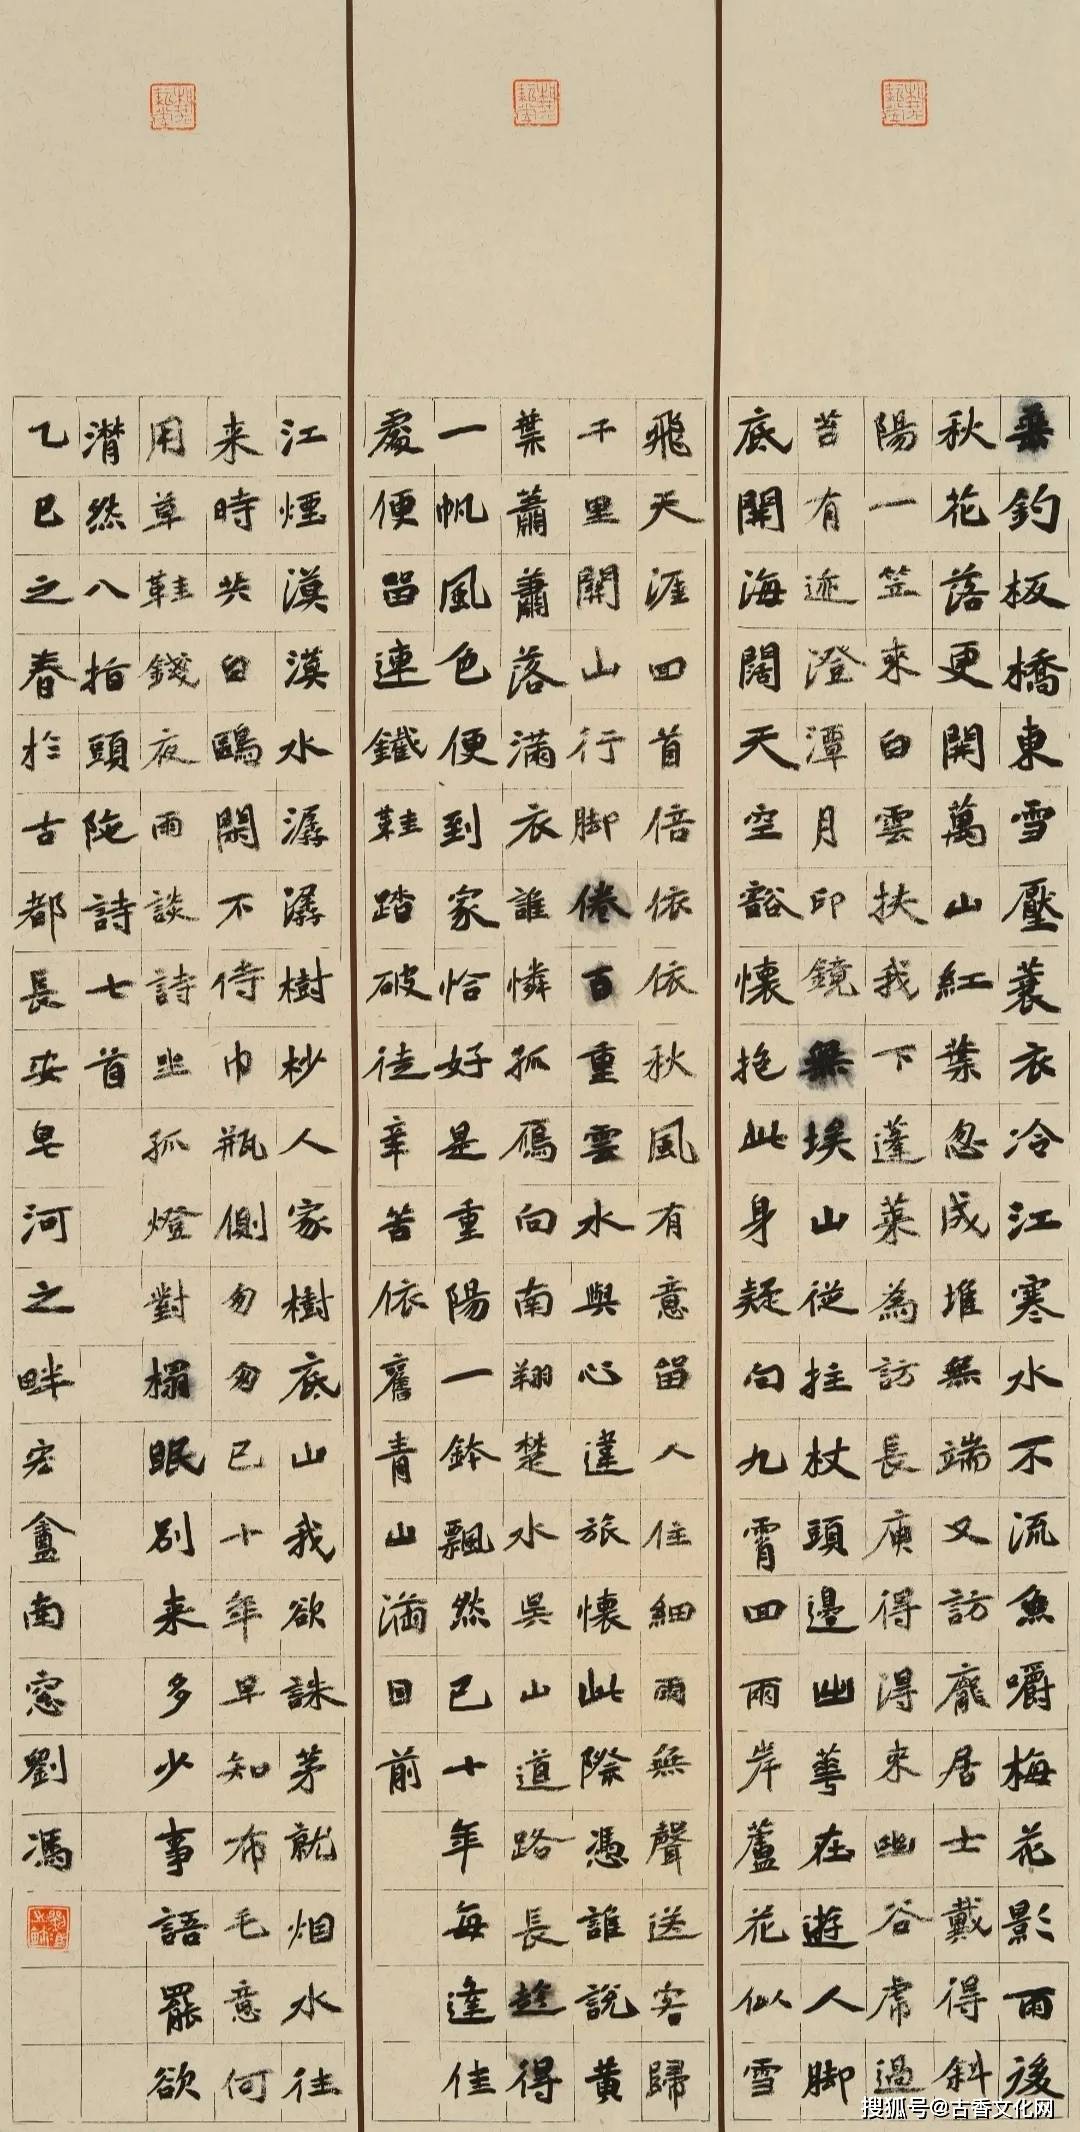 垂釣板橋東雪壓蓑衣冷江寒水不流魚嚼梅花影雨後
秋花落更開萬山紅葉忽成堆無端又訪龐居士戴得斜
陽一笠來白雲扶我下蓬萊為訪長庚得得来幽谷虎過
苔有迹澄潭月印鏡無埃山從拄杖頭邊出華在遊人脚
底開海闊天空豁懷抱此身疑向九霄回兩岸蘆花似雪
飛天涯回首倍依依秋風有意留人住細雨無聲送客歸
千里關山行脚倦百重雲水與心違旅懷此際憑誰說黄
葉蕭蕭落滿衣誰憐孤鴈向南翔楚水吳山道路長趁得
一帆風色便到家恰好是重陽一鉢飄然已十年每逢佳
處便留連鐵鞋踏破徒辛苦依舊青山滿目前
江煙漠漠水潺潺樹杪人家樹底山我欲誅茅就烟水往
来時共白鷗閑不侍巾瓶側匆匆已十年早知布毛意何
用草鞋錢夜雨談詩坐孤燈對榻眠別来多少事語罷欲
潸然八指頭陀詩七首
乙巳之春於古都長安皂河之畔宏盦南窓劉馮
搜狐号@古香文化网